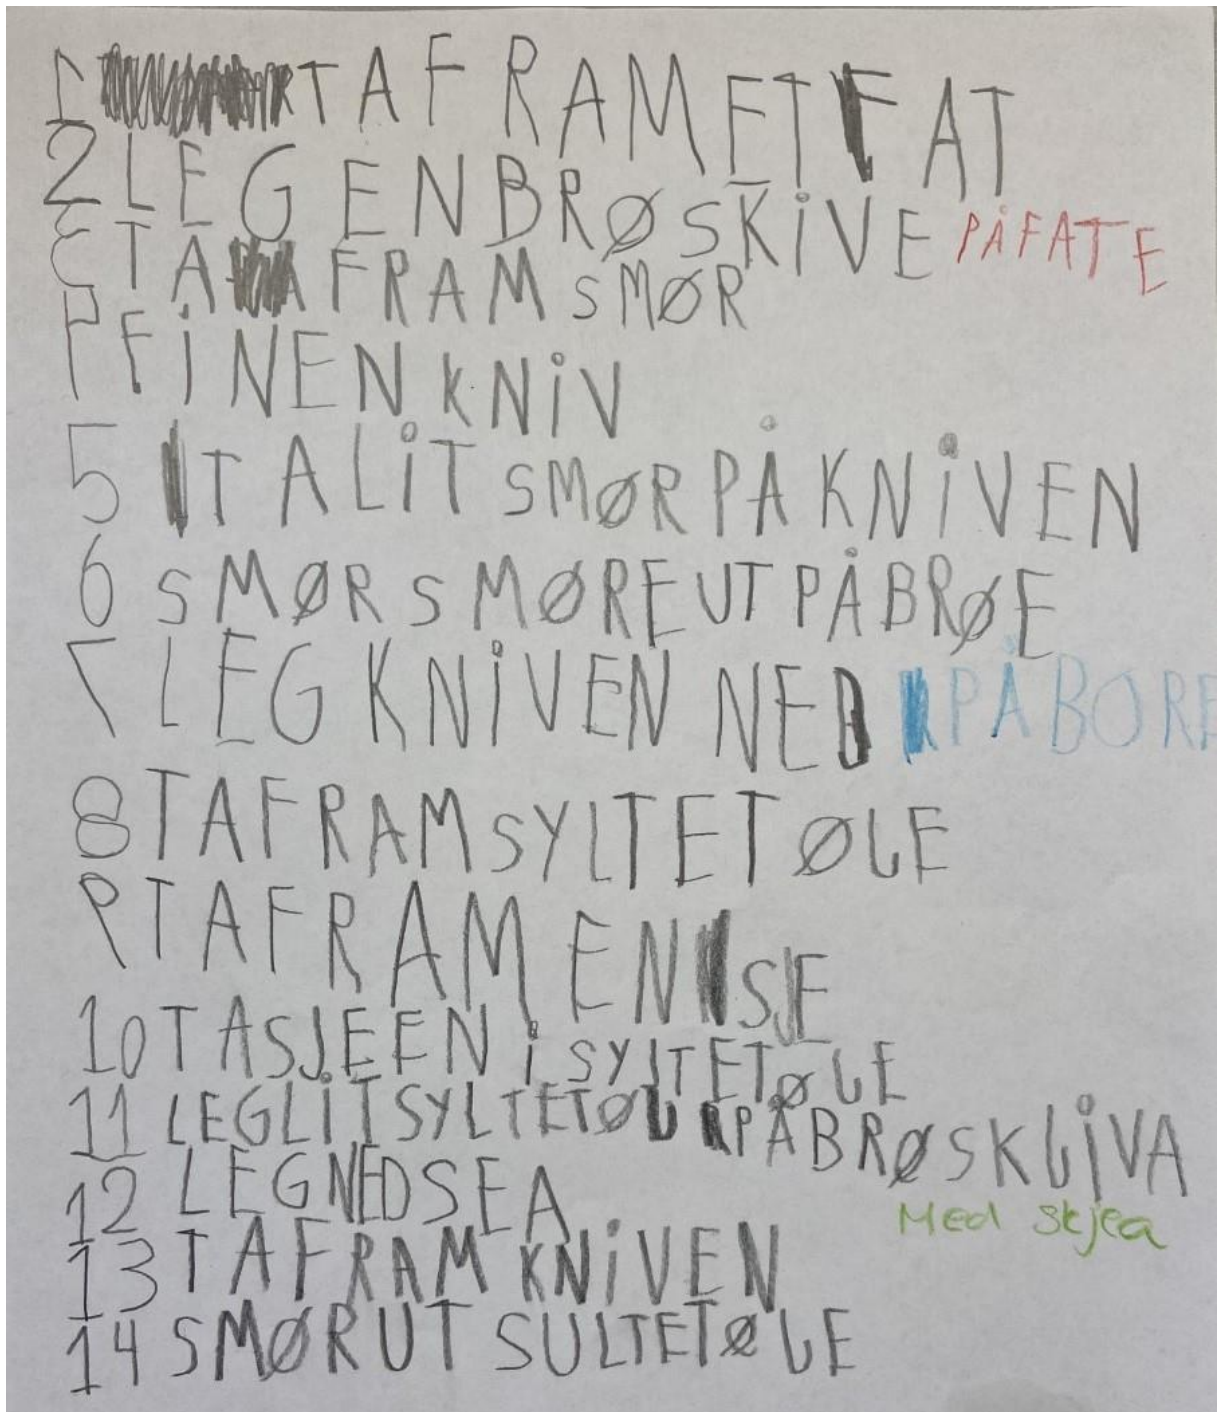 1 TA FRAM ET FAT
2 LEG EN BRØSKIVE PÅ FATE
3 TA FRAM SMØR
4 FIN EN KNIV
5 TA LIT SMØR PÅ KNIVEN
6 SMØR SMØRE UT PÅ BRØE
7 LEG KNIVEN NED PÅ BORE
8 TA FRAM SYLTETØLE
9 TA FRAM EN SJE
10 TA SJEEN I SYLTETØLE
11 LEG LIT SYLTETØL PÅ BRØSKLIVA
Med skjea
12 LEG NED SEA
13 TA FRAM KNIVEN
14 SMØR UT SULTETØLE